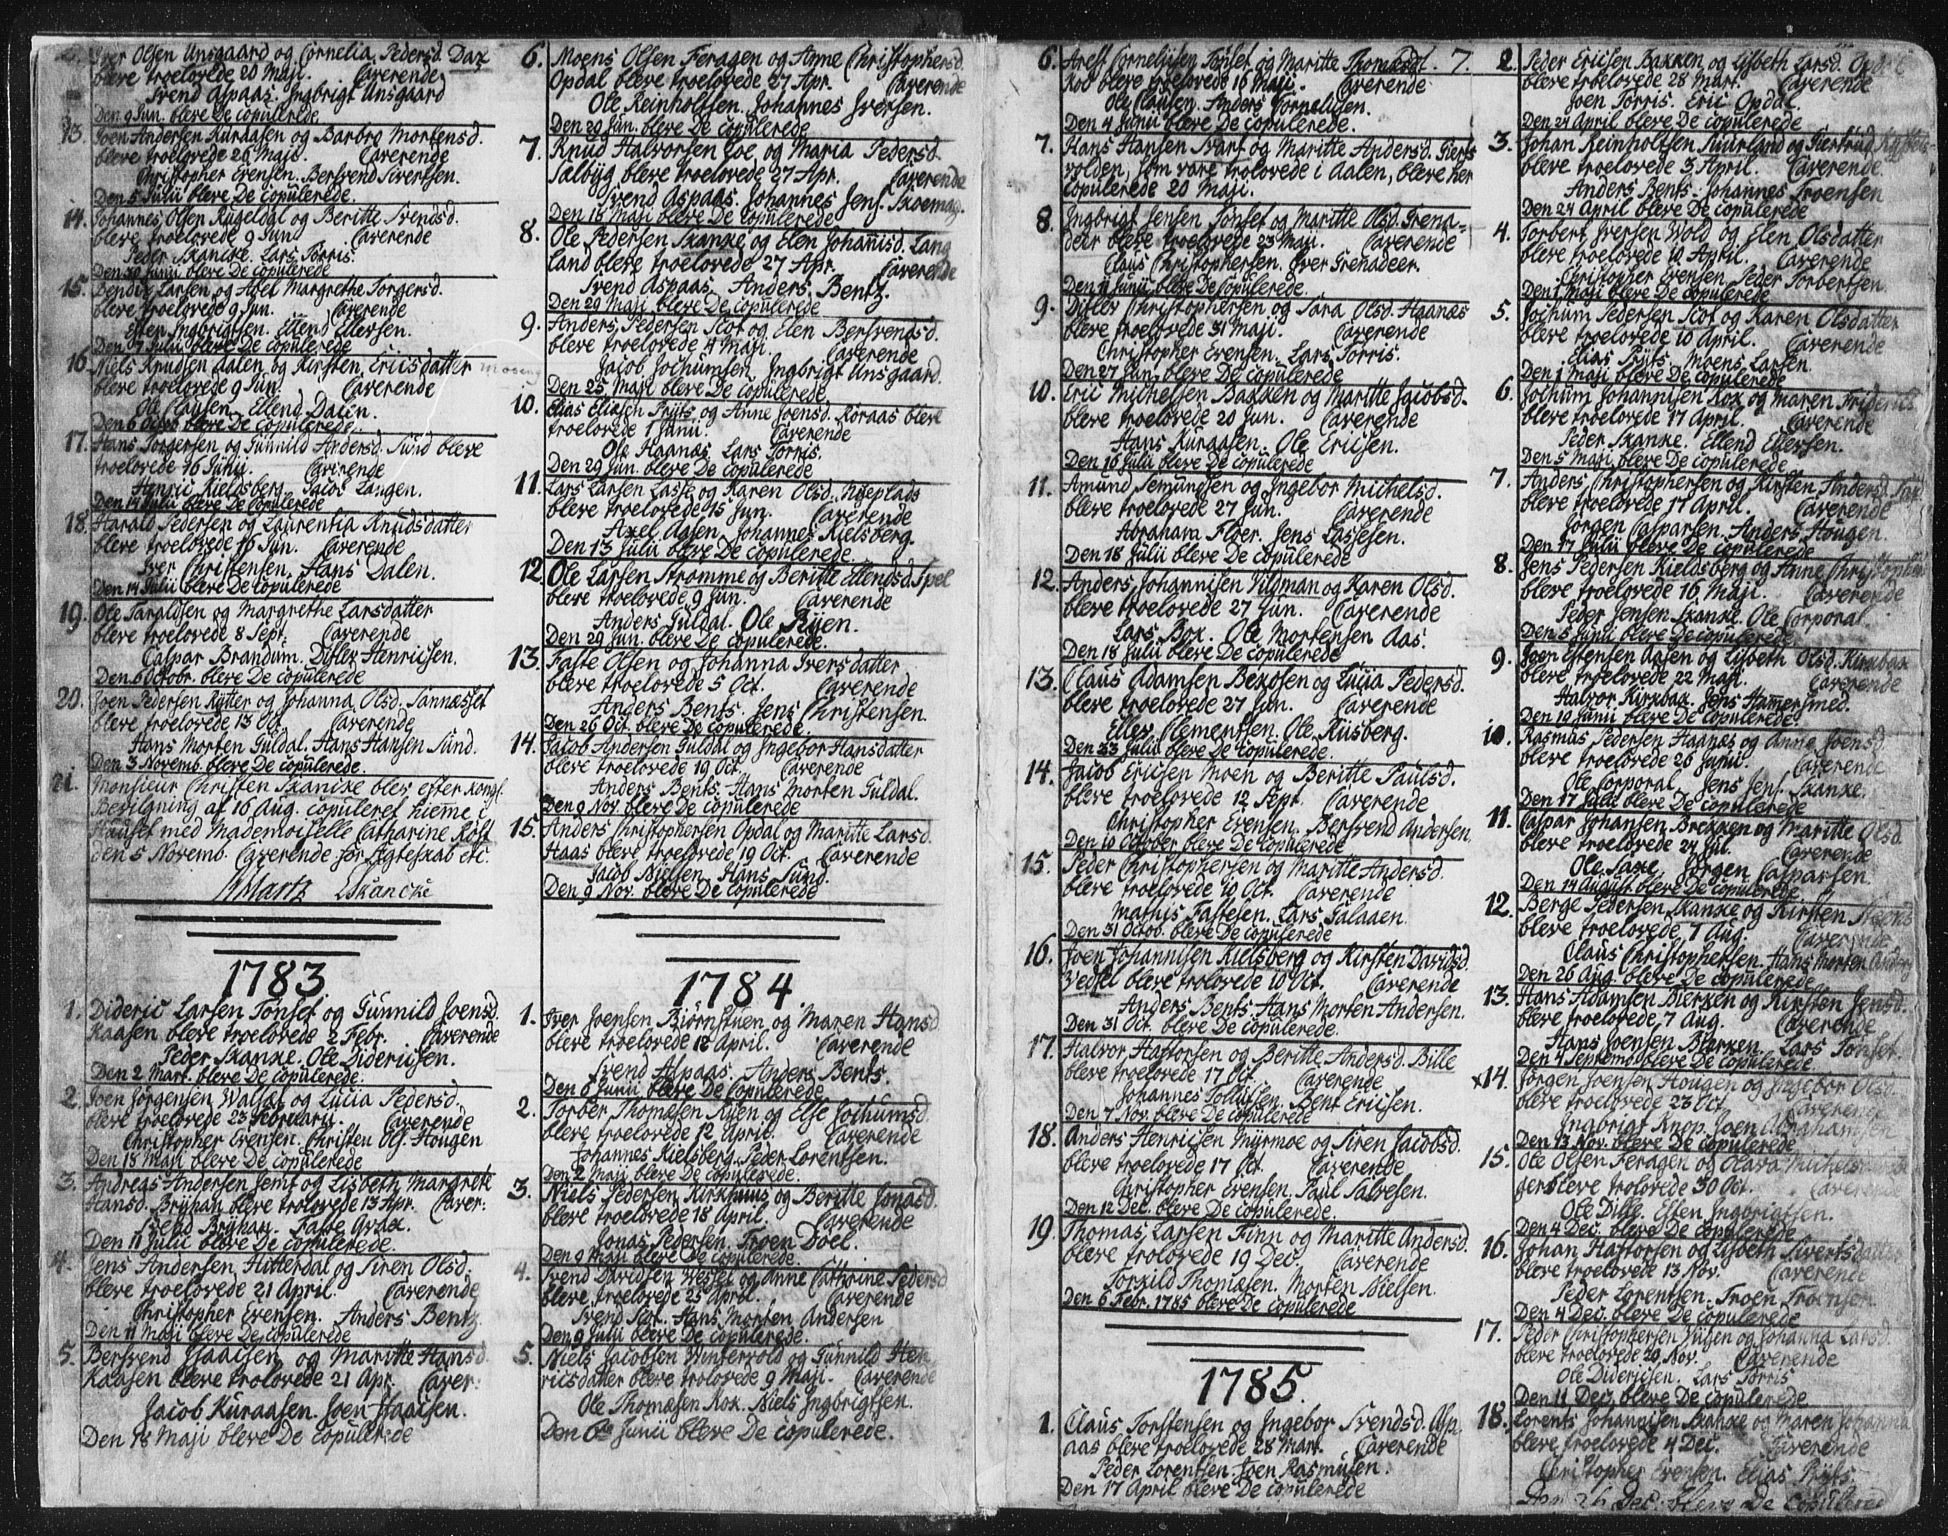 Iver Olsen Unsgaard og Cornelia Pedersd. Dax
bleve troelovede 20 Maji. Caverende
Svend Aspaas. Ingbrigt Unsgaard
Den 9 Jun. bleve De copulerede
13. Joen Andersen Kuraasen og Barbro Mortensd.
bleve troelovede 26 Maji. Caverende
Christopher Evensen. Bersvend Sivertsen.
Den 5 Julii bleve De copulerede.
14. Johannes Olsen Rugeldal og Beritte Svendsd.
bleve troelovede 9 Jun. Caverende
Peder Skancke. Lars Torris.
Den 30 Junii bleve De copulerede
15. Bendix Larsen og Abel Margrethe Torgersd.
bleve troelovede 9 Jun. Caverende
Esten Ingbrigtsen. Ellend Ellevsen.
Den 7 Julii bleve De copulerede
16. Niels Knudsen Aalen og Kirsten Ericsdatter
bleve troelovede 9 Jun. Caverende
Ole Clausen. Ellend Dalen.
Den 6 Octob bleve De copulerede.
17. Hans Torgersen og Gunnild Andersd. Sund bleve
troelovede 16 Junii. Caverende
Henric Kieldsberg. Jacob Langen.
Den 14 Julii bleve De copulerede
18. Harald Pedersen og Laurentia Knudsdatter
bleve troelovede 16 Jun. Caverende
Iver Christensen. Hans Dalen.
Den 14 Julii bleve De copulerede
19. Ole Taraldsen og Margrethe Larsdatter
bleve troelovede 8 Sept. Caverende
Caspar Brandum. Ditlev Henricsen.
Den 6 Octobr. bleve De copulerede
20. Joen Pedersen Rytter og Johanna Olsd. Tannæsset
bleve troelovede 13 Oct. Caverende
Hans Morten Guldal. Hans Hansen Sund.
Den 3 Novemb. bleve De copulerede.
21. Monsieur Christen Skancke blev efter kongl.
Bevilgning af 16 Aug. copuleret hieme i
Hauset med Mademoiselle Catharine Röst
den 5 Novemb. Caverende for Ægteskab etc:
Martz LSkancke
1783
1. Dideric Larsen Tønset og Gunnild Joensd.
Kaasen bleve troelovede 2 Febr. Caverende
Peder Skanke. Ole Didericsen.
Den 2 Mart. bleve De copulerede.
2. Joen Jörgensen Walsæt og Lucia Pedersd.
bleve troelovede 23 Februarii. Caverende
Christopher Evensen. Christen Ols. Hougen
Den 18 Maji bleve De copulerede
3. Andreas Andersen Jemt og Lisbeth Margrete
Hansd. Brÿhan bleve trolovede 13 Apr. Caver:
Svend Brÿhan. Faste Grax.
Den 11 Julii bleve De copulerede.
4. Jens Andersen Hitterdal og Siren Olsd.
bleve troelovede 21 April. Caverende
Christopher Evensen. Anders Bentz.
Den 11 Maji bleve De copulerede
5. Bersvend Isaacsen og Maritte Hansd.
Kaasen bleve trolovede 21 Apr. Caver:
Jacob Kuraasen. Joen Isaacsen.
Den 18 Maji bleve De copulerede
6. Moens Olsen Feragen og Anne Christophersd.
Opdal bleve troelovede 27 Apr. Caverende
Ole Reinholtsen. Johannes Iversen.
Den 29 Jun. bleve De copulerede
7. Knud Halvorsen Loe og Maria Pedersd.
Sælbÿg bleve troelovede 27 Apr. Caverende
Svend Aspaas. Johannes Jens. Skoemag.
Den 18 Maji bleve De copulerede
8. Ole Pedersen Skanke og Elen Johannisd. Lang
land bleve troelovede 27 Apr. Caverende
Svend Aspaas. Anders Bentz.
Den 29 Maji bleve De copulerede
9. Anders Pedersen Scot og Elen Bersvendsd.
bleve troelovede 4 Maji. Caverende
Jacob Jochumsen. Ingbrigt Unsgaard.
Den 25 Maji bleve De copulerede
10. Elias Eliæsen Prÿts og Anne Joensd. Koraas bleve
troelovede 1 Junii. Caverende
Ole Haanæs. Lars Torris.
Den 29 Jun. bleve De copulerede
11. Lars Larsen Lasse og Karen Olsd. Nÿeplads
bleve troelovede 15 Jun. Caverende
Axel Aasen. Johannes Kielsberg.
Den 13 Julii bleve De copulerede
12. Ole Larsen Stromme og Beritte Ellendsd. Spel
bleve troelovede 9 Jun. Caverende
Anders Guldal. Ole Rÿen.
Den 29 Jun. bleve De copulerede.
13. Faste Olsen og Johanna Iversdatter
bleve troelovede 5 Oct. Caverende
Anders Bents. Jens Christensen.
Den 26 Oct. bleve De copulerede.
14. Jacob Andersen Guldal og Ingebor Hansdatter
bleve troelovede 19 Oct. Caverende
Anders Bents. Hans Morten Guldal.
Den 9 Nov. bleve De copulerede
15. Anders Christophersen Opdal og Maritte Larsd.
Haas bleve troelovede 19 Oct. Caverende
Jacob Nielsen. Hans Sund.
Den 9 Nov. bleve De copulerede
1784
1. Iver Joensen Biörnstuen og Maren Hansd.
bleve troelovede 12 April. Caverende
Svend Aspaas. Anders Bents.
Den 6 Junii bleve De Copulerede.
2. Torber Thomæsen Rÿen og Else Jochumsd.
bleve troelovede 12 April. Caverende
Johannes Kielsberg. Peder Lorentsen.
Den 2 Maji bleve De copulerede.
3. Niels Pedersen Kirkhuus og Beritte Jonasd.
bleve troelovede 18 April. Caverende
Jonas Pedersen. Troen Doel.
Den 9 Maji bleve De copulerede.
4. Svend Davidsen Vessel og Anne Cathrine Pedersd
bleve troelovede 25 April. Caverende
Svend Scot. Hans Morten Andersen
Den 9 Julii bleve De copulerede.
5. Niels Jacobsen Vintervold og Gunnild Hen
ricsdatter bleve trolovede 9 Maji. Caverende
Ole Thomæsen Kox. Niels Ingbrigtsen.
Den 6te Junii bleve De copulerede.
6. Arest Corneliisen Tønset og Maritte Thomæsd. 7.
Kox bleve troelovede 16 Maji. Caverende
Ole Clausen. Anders Cornelisen.
Den 4 Junii bleve De copulerede.
7. Hans Hansen Svart og Maritte Andersd. Giers
volden, som vare trolovede i Aalen, bleve her
copulerede 20 Maji.
8. Ingbrigt Jensen Tønset og Maritte Olsd. Grena-
deer bleve troelovede 23 Maji. Caverende
Claus Christophersen. Iver Grenadeer.
Den 11 Junii bleve De copulerede.
9. Ditlev Christophersen og Sara Olsd. Haanæs
bleve troelovede 31 Maji. Caverende
Christopher Evensen. Lars Torris.
Den 27 Jun. bleve De copulerede
10. Eric Michelsen Bakken og Maritte Jacobsd.
bleve troelovede 20 Jun. Caverende
Hans Kuraasen. Ole Ericsen.
Den 16 Julii bleve De copulerede
11. Amund Semundsen og Ingebor Michelsd.
bleve troelovede 27 Jun. Caverende
Abraham Floer. Jens Lassesen.
Den 18 Julii bleve De copulerede
12. Anders Johannisen Vildman og Karen Olsd.
bleve troelovede 27 Jun. Caverende
Lars Box. Ole Mortensen Aas.
Den 18 Julii bleve De copulerede
13. Claus Adamsen Bekosen og Lucia Pedersd.
bleve troelovede 27 Jun. Caverende
Ellev Clementsen. Ole Riisberg.
Den 23 Julii bleve De copulerede
14. Jacob Ericsen Moen og Beritte Paulsd.
bleve troelovede 12 Sept. Caverende
Christopher Evensen. Bersvend Andersen.
Den 10 October bleve De copulerede
15. Peder Christophersen og Maritte Andersd.
bleve troelovede 10 Oct. Caverende
Mathis Fastesen. Lars Galaaen.
Den 31 Octob. bleve De copulerede
16. Joen Johannisen Kielsberg og Kirsten Davidsd.
Vessel bleve trolovede 10 Oct. Caverende
Anders Bents. Hans Morten Andersen.
Den 31 Oct. bleve De copulerede.
17. Halvor Haftorsen og Beritte Andersd. Bille
bleve troelovede 17 Oct. Caverende
Johannes Tollufsen. Bent Ericsen.
Den 7 Nov. bleve De copulerede
18. Anders Henricsen Myrmoe og Siren Jacobsd.
bleve troelovede 17 Oct. Caverende
Christopher Evensen. Paul Salvesen.
Den 12 Dec. bleve De copulerede.
19. Thomas Larsen Finn og Maritte Andersd.
bleve trolovede 19 Dec. Caverende
Torkild Thomæsen. Morten Nielsen.
Den 6 Febr. 1785 bleve De copulerede
1785
1. Claus Torstensen og Ingebor Svendsd. Asp
aas bleve troelovede 28 Mart. Caverende
Peder Lorentsen. Joen Rasmusen.
Den 17 April bleve De copulerede
2. Peder Ericsen Bakken og Lisbeth Larsd. Opdal
bleve troelovede 28 Mart. Caverende
Joen Torris. Eric Opdal.
Den 24 April bleve De copulerede
3. Johan Reinholtsen Suurland og Giertrud
bleve troelovede 3 April. Caverende
Anders Bents. Johannes Troensen
Den 24 April bleve De copulerede
4. Torbert Iversen Wold og Elen Olsdatter
bleve troelovede 10 April. Caverende
Christopher Evensen. Peder Torbertsen.
Den 1 Maji bleve De copulerede
5. Jochum Pedersen Scot og Karen Olsdatter
bleve troelovede 10 April. Caverende
Elias Prÿts. Moens Larsen.
Den 1 Maji bleve De copulerede
6. Jochum Johannisen Kox og Maren Friderics
bleve troelovede 17 April. Caverende
Peder Skanke. Ellend Ellevsen.
Den 5 Maji bleve De copulerede
7. Anders Christophersen og Kirsten Andersd.
bleve troelovede 17 April. Caverende
Jörgen Casparsen. Anders Hougen.
Den 17 Julii bleve De copulerede
8. Jens Pedersen Kieldsberg og Anne Christophersd
bleve troelovede 16 Maji. Caverende
Peder Jensen Skanke. Ole Corporal.
Den 5 Junii bleve De copulerede
9. Joen Estensen Aasen og Lisbeth Olsd. Kirkbak
bleve troelovede 22 Maji. Caverende
Halvor Kirkbak. Jens Hammersmed.
Den 19 Junii bleve De copulerede.
10. Rasmus Pedersen Haanæs og Anne Joensd.
bleve troelovede 26 Junii. Caverende
Ole Corporal. Jens Jens. Skanke.
Den 17 Julii bleve De copulerede
11. Caspar Johansen Brekken og Maritte Olsd.
bleve troelovede 24 Jul. Caverende
Ole Saxe. Jörgen Casparsen.
Den 14 August. bleve De copulerede
12. Berge Pedersen Skanke og Kirsten
bleve troelovede 7 Aug. Caverende
Claus Christophersen. Hans Morten Anders
Den 26 Aug. bleve De copulerede.
13. Hans Adamsen Bierken og Kirsten Jensd.
bleve troelovede 7 Aug. Caverende
Hans Joensen Bierken. Lars Tønset.
Den 4 Septemb bleve De copulerede.
x14. Jörgen Joensen Hougen og Ingebor Olsd.
bleve troelovede 23 Oct. Caverende
Ingbrigt Knop. Joen Abrahamsen
Den 13 Nov. bleve De copulerede
15. Ole Olsen Feragen og Olava Michels
gen bleve trolovede 30 Oct. Caverende
Ole Dille. Esten Ingbrigtsen.
Den 4 Dec. bleve De copulerede
16. Johan Haftorsen og Lisbeth Sivertsdatter
bleve troelovede 13 Nov. Caverende
Peder Lorentsen. Troen Troensen
Den 4 Dec. bleve De copulerede
17. Peder Christophersen Vigen og Johanna Larsd.
bleve troelovede 20 Nov. Caverende
Ole Didericsen. Lars Torris
Den 11 Dec. bleve De copulerede
18. Lorents Johannisen Skanke og Maren Johanna
bleve troelovede 4 Dec. Caverende
Christopher Evensen. Elias Prÿts.
Den 26 Dec. bleve De copulerede